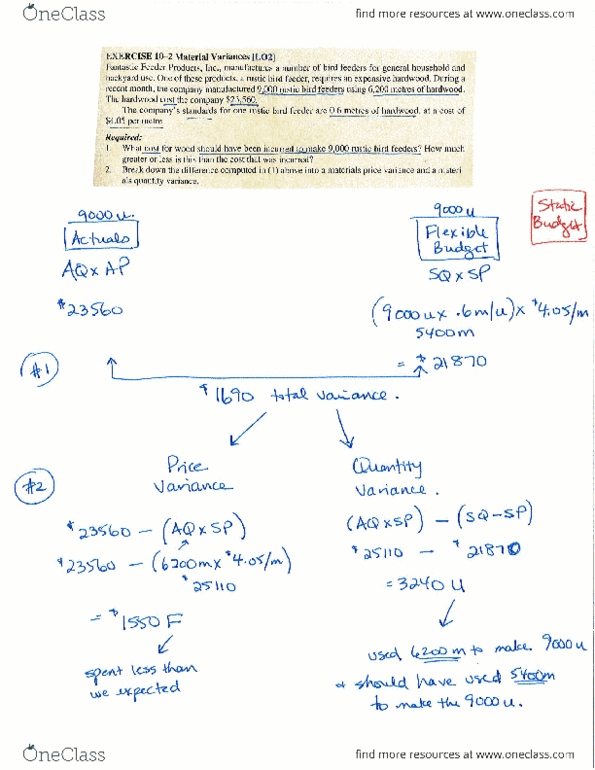 OneClass
find more resources at www.oneclass.com
EXERCISE 10–2 Material Variances [LO2]
Fantastic Feeder Products, Inc., manufactures a number of bird feeders for general household and
backyard use. One of these products, a rustic bird feeder, requires an expensive hardwood. During a
recent month, the company manufactured 9,000 rustic bird feeders using 6,200 metres of hardwood.
The hardwood cost the company $23,560.
The company's standards for one rustic bird feeder are 0.6 metres of hardwood, at a cost of
$4.05 per metre.
Required:
1. What cost for wood should have been incurred to make 9,000 rustic bird feeders? How much
greater or less is this than the cost that was incurred?
2. Break down the difference computed in (1) above into a materials price variance and a materi
als quantity variance.
9000 u.
Actuals
AQ x AP
$23560
9000 u
Flexible
Budget
SQ x SP
(9000 u x .6m/u) x $4.05/m
5400m
= $21870
Static
Budget
#1
$1690 total variance.
#2
Price
Variance
$23560 – (AQ x SP)
$23560 – (6200m x $4.05/m)
$25110
= $1550 F
spent less than
we expected
Quantity
Variance.
(AQ x SP) – (SQ – SP)
$25110 – $21870
= 3240 U
used 6200m to make 9000u
should have used 5400m
to make the 9000 u.
OneClass
find more resources at www.oneclass.com